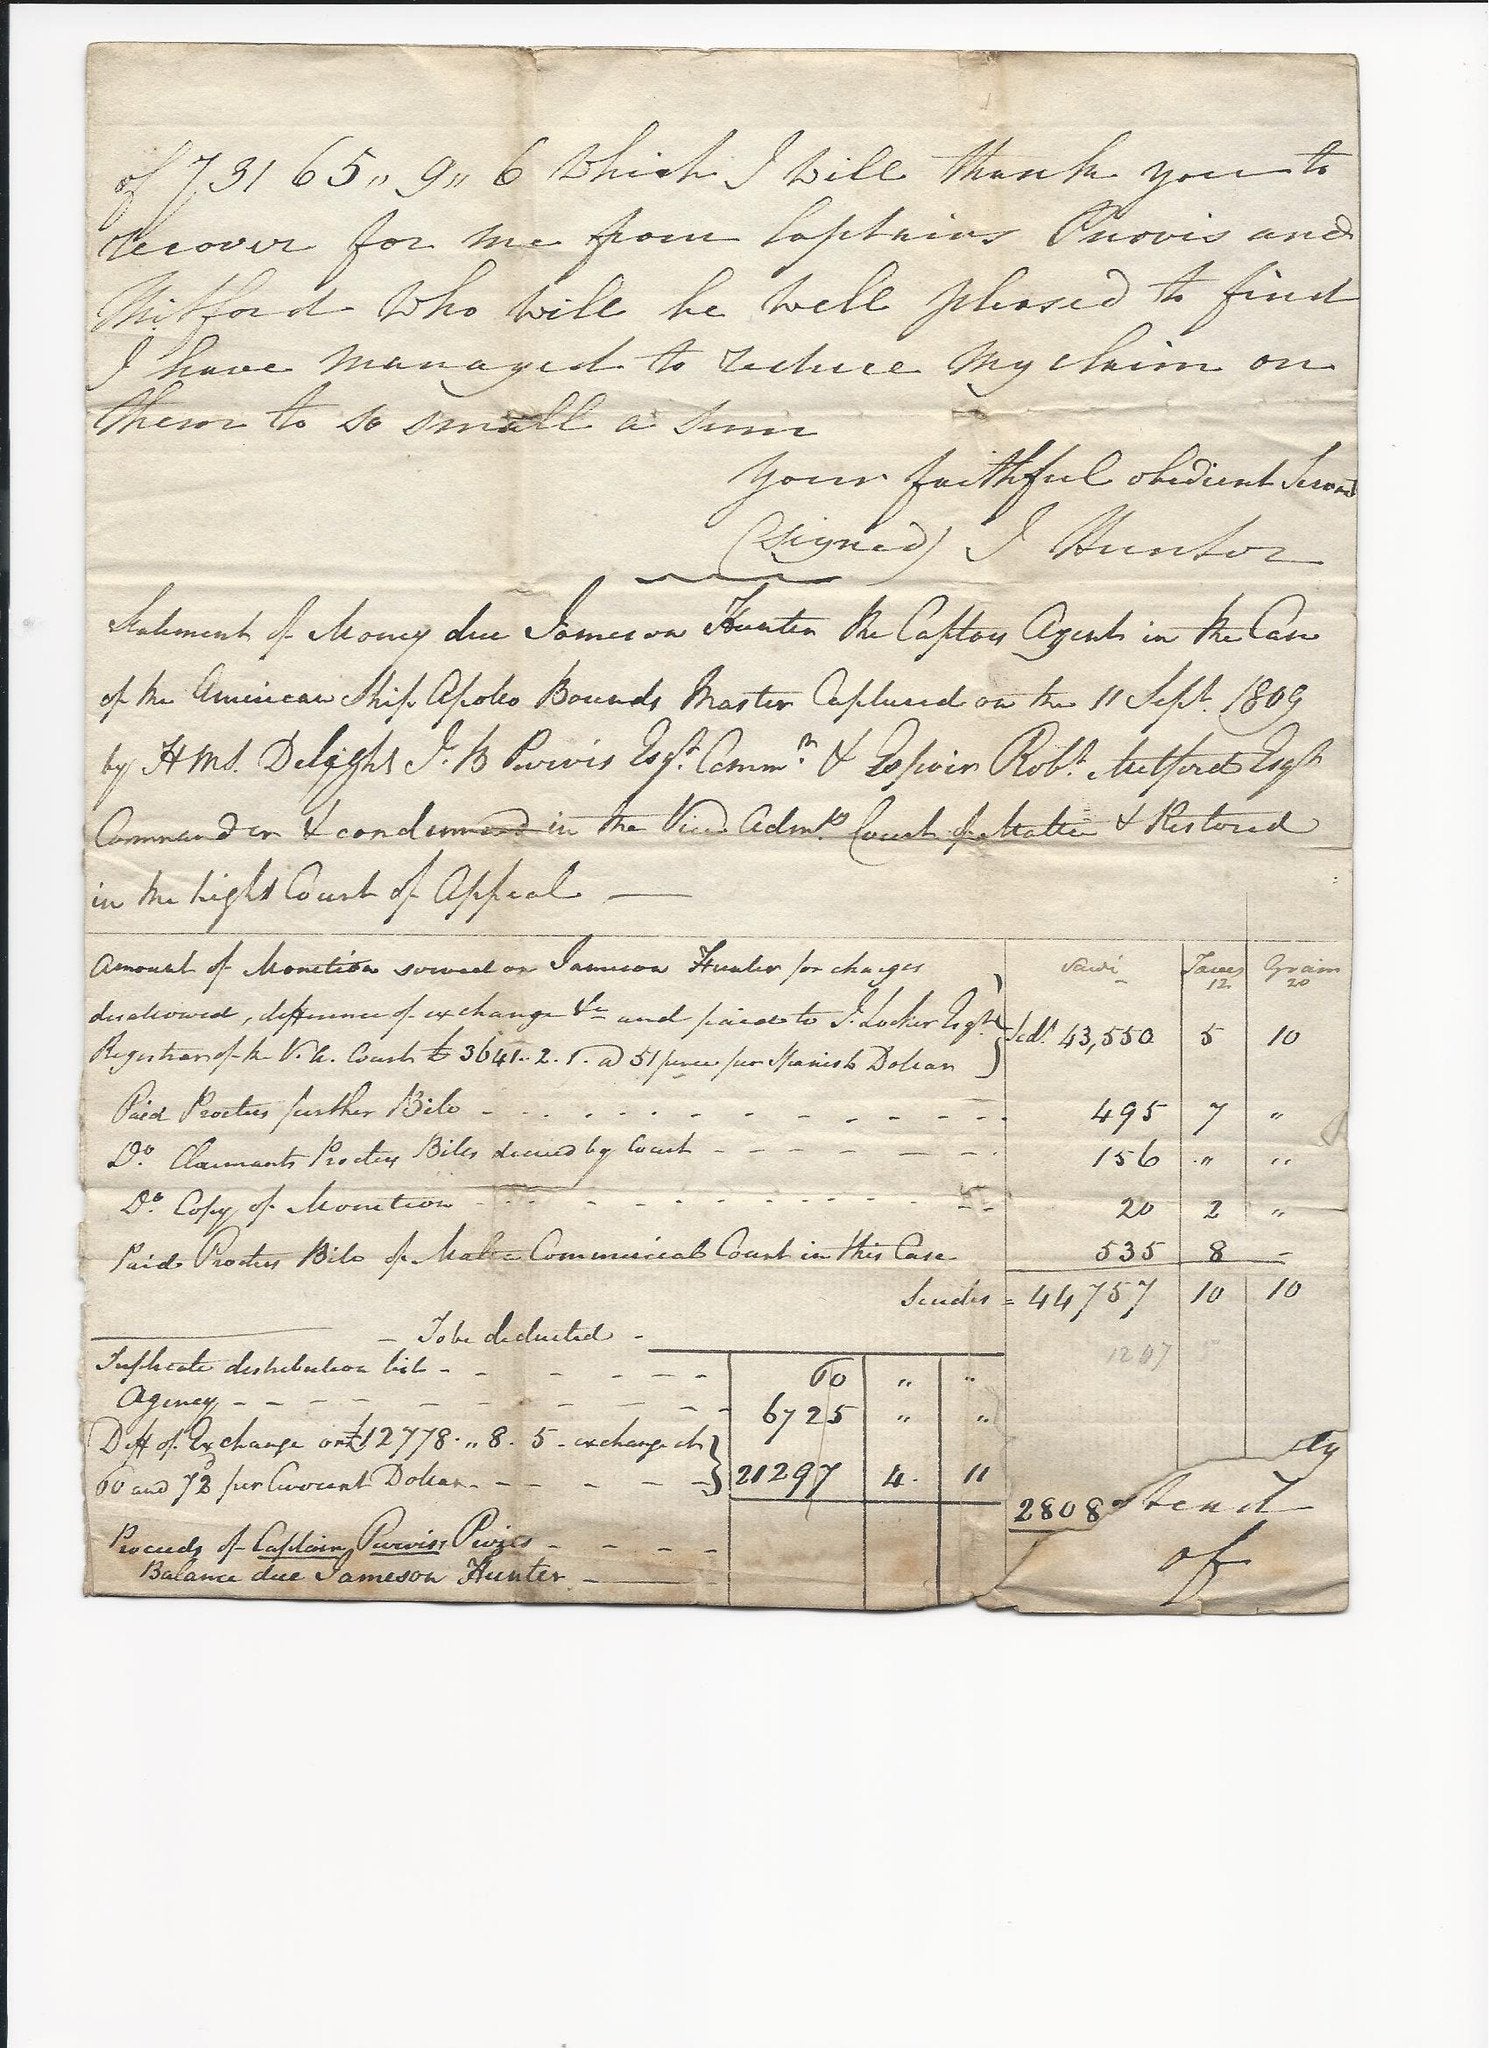 of 7,31 65,, 9,, 6 which I will thank you to
recover for me from Captains Purvis and
Mitford who will be well pleased to find
I have managed to reduce my claim on
them to so small a sum
your faithful obedient Servant
(signed) J Hunter
Statement of Money due Jameson Hunter the Captors Agent in the Case
of the American Ship Apollo Bounds Master Captured on the 11 Sept. 1809
by HMS. Delight J. B Purvis Esqr. Commr. & Espoir Robt. Mitford Esqr
Commander & condemned in the Vice Admty Court of Malta & Restored
in the high Court of Appeal —
Scudi Tares Grain
12 20
Amount of Monition served on Jameson Hunter for charges
disallowed, difference of exchange &c and paid to J. Locker Esqr
Registrar of the V. A. Court £ 3641.. 2. 1. @ 51 pence per Spanish Dollar Scds. 43,550 5 10
Paid Proctors further Bill 495 7 "
Do. Claimants Proctors Bills decreed by Court 156 " "
Do. Copy of Monition 20 2 "
Paid Proctors Bill of Malta Commercial Court in this Case 535 8 –
Scudes = 44757 10 10
– To be deducted – 1207
Triplicate distribution list 60 " "
Agency 6725 " "
Diff of Exchange on £12778.. 8. 5 – exchange at
60 and 72 per Current Dollar 21297 4. 11
2808
Proceeds of Captain Purvis's Prizes
of
Balance due Jameson Hunter